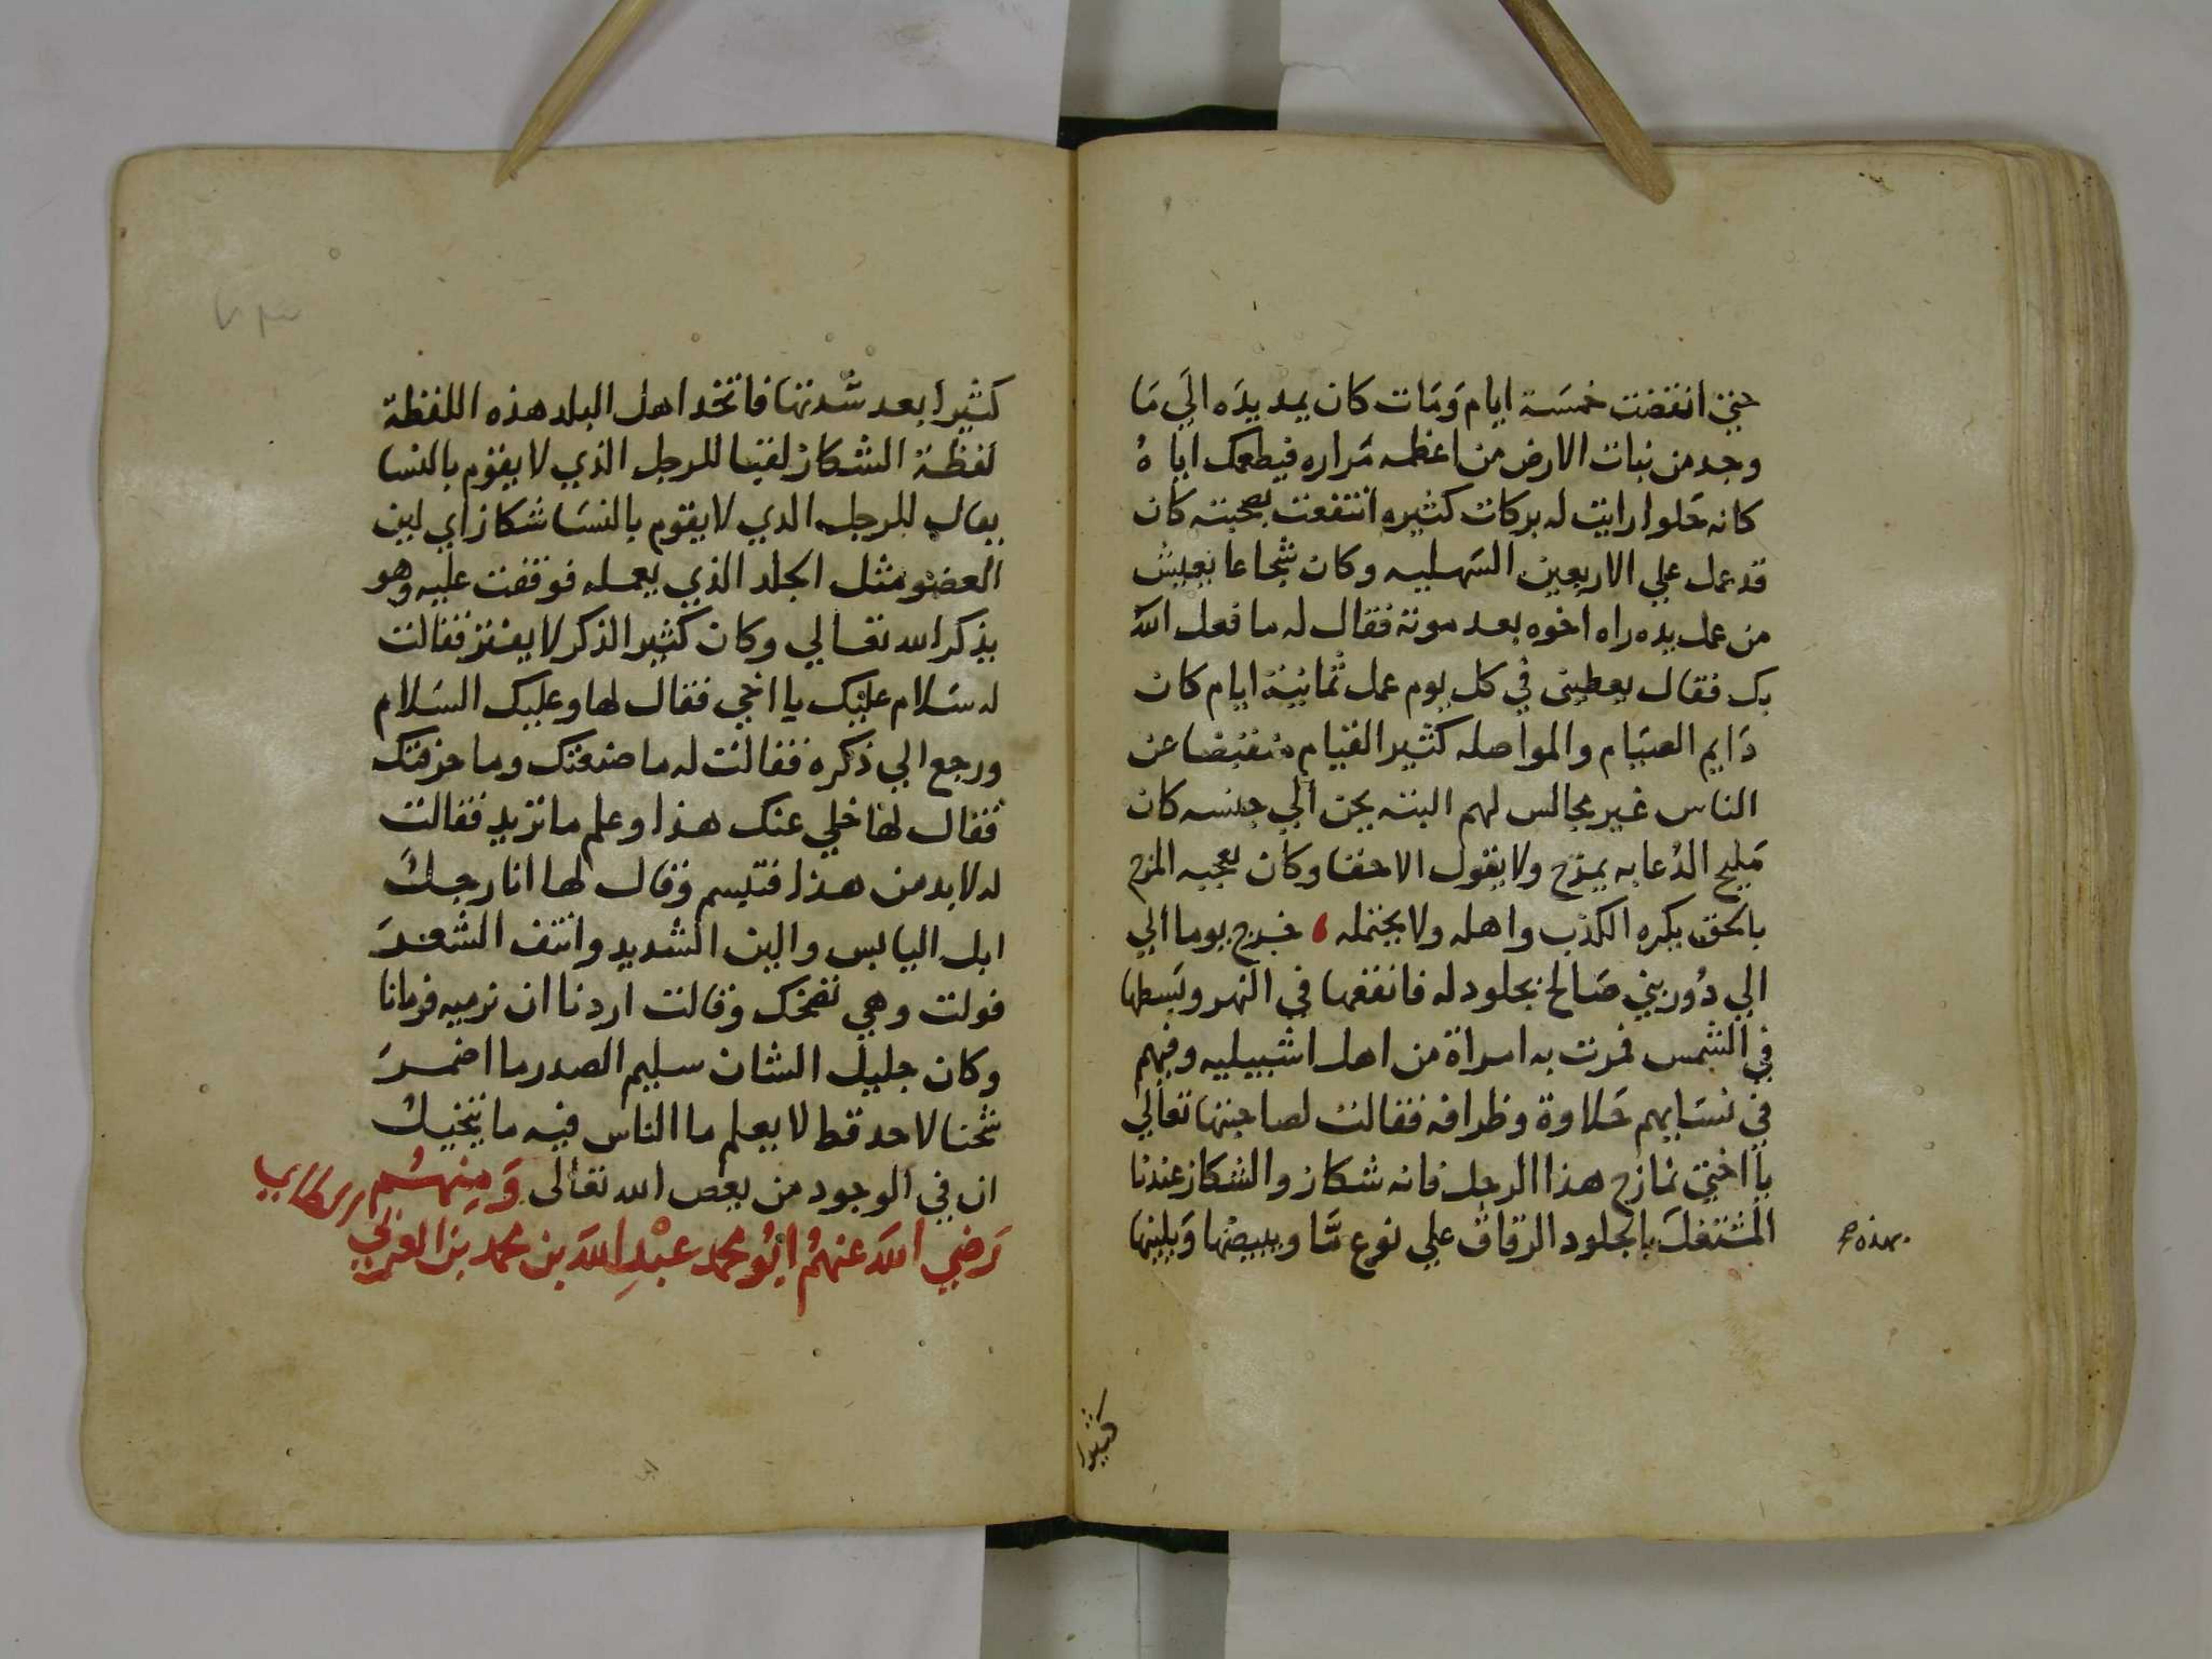 حتى انقضت خمسة ايام وَمَات كان يمد يدَه الَي مَا
وجد من نبات الارض من اعظمه مَراره فيطعمك اياهُ
كانه حَلوا رايت له بركات كثيره انتفعت بصحبته كان
قد عمل علي الاربعين السَهليه وكان شجاعا يعيش
من عمل يده راه اخوه بعد موته فقال له ما فعل الله
بك فقال يعطيني في كل يوم عمل ثمانية ايام كان
دَايم الصيَام والمواصله كثير القيام منقبضا عن
الناس غير مجالس لهم البته يحن الي جنسه كان
مَليح الدُعابه يمزح ولا يقول الا حقا وكان يعجبه المزح
بالحق يكره الكذب واهله ولا يحتمله ، خرج يوما الي
الي دُور بني صَالح بجلود له فانقعها في النهر وبَسطها
في الشمس فمرت به امراة من اهل اشبيليه وفيهم
في نسَايهم حَلاوة وظرافه فقالت لصاحبتها تعالَي
يا اختي نمازح هذا الرجل فانه شكاز والشكاز عندنا
المشتغلَ بالجلود الرقاق علي نوع مَّا ويبيضها وَيلينها
بهذه
كثيرا
كثيرا بعد شدتها فاتخذ اهل البلد هذه اللفظة
لفظة الشكاز لقبا للرجل الذي لا يقوم بالنسا
يقال للرجل الذي لا يقوم بالنسَا شكاز اي لين
العضو مثل الجلد الذي يعمله فوقفت عليه وهو
يذكر الله تعالي وكان كثير الذكر لا يفتر فقالت
له سَلام عليك يا اخي فقال لها وعليك السَلام
ورجع الي ذكره فقالت له ما صنعتك وما حرفتك
فقال لها خلي عنك هذا وعلم ما تريد فقالت
له لا بد من هذا فتبسم وقال لها انا رجلٌ
ابل اليابس والين الشديد وانتف الشعرَ
فولت وهي تضحك وقالت اردنا ان نرميه فرمانا
وكان جليل الشان سليم الصدر ما اضمرَ
شحنا لاحد قط لا يعلم ما الناس فيه ما يتخيل
ان في الوجود من يعص الله تعالى وَمِنهُم
رَضيَ اللهَ عنهُم ابُو محمد عبْدِ اللهَ بن محمد بن العربي